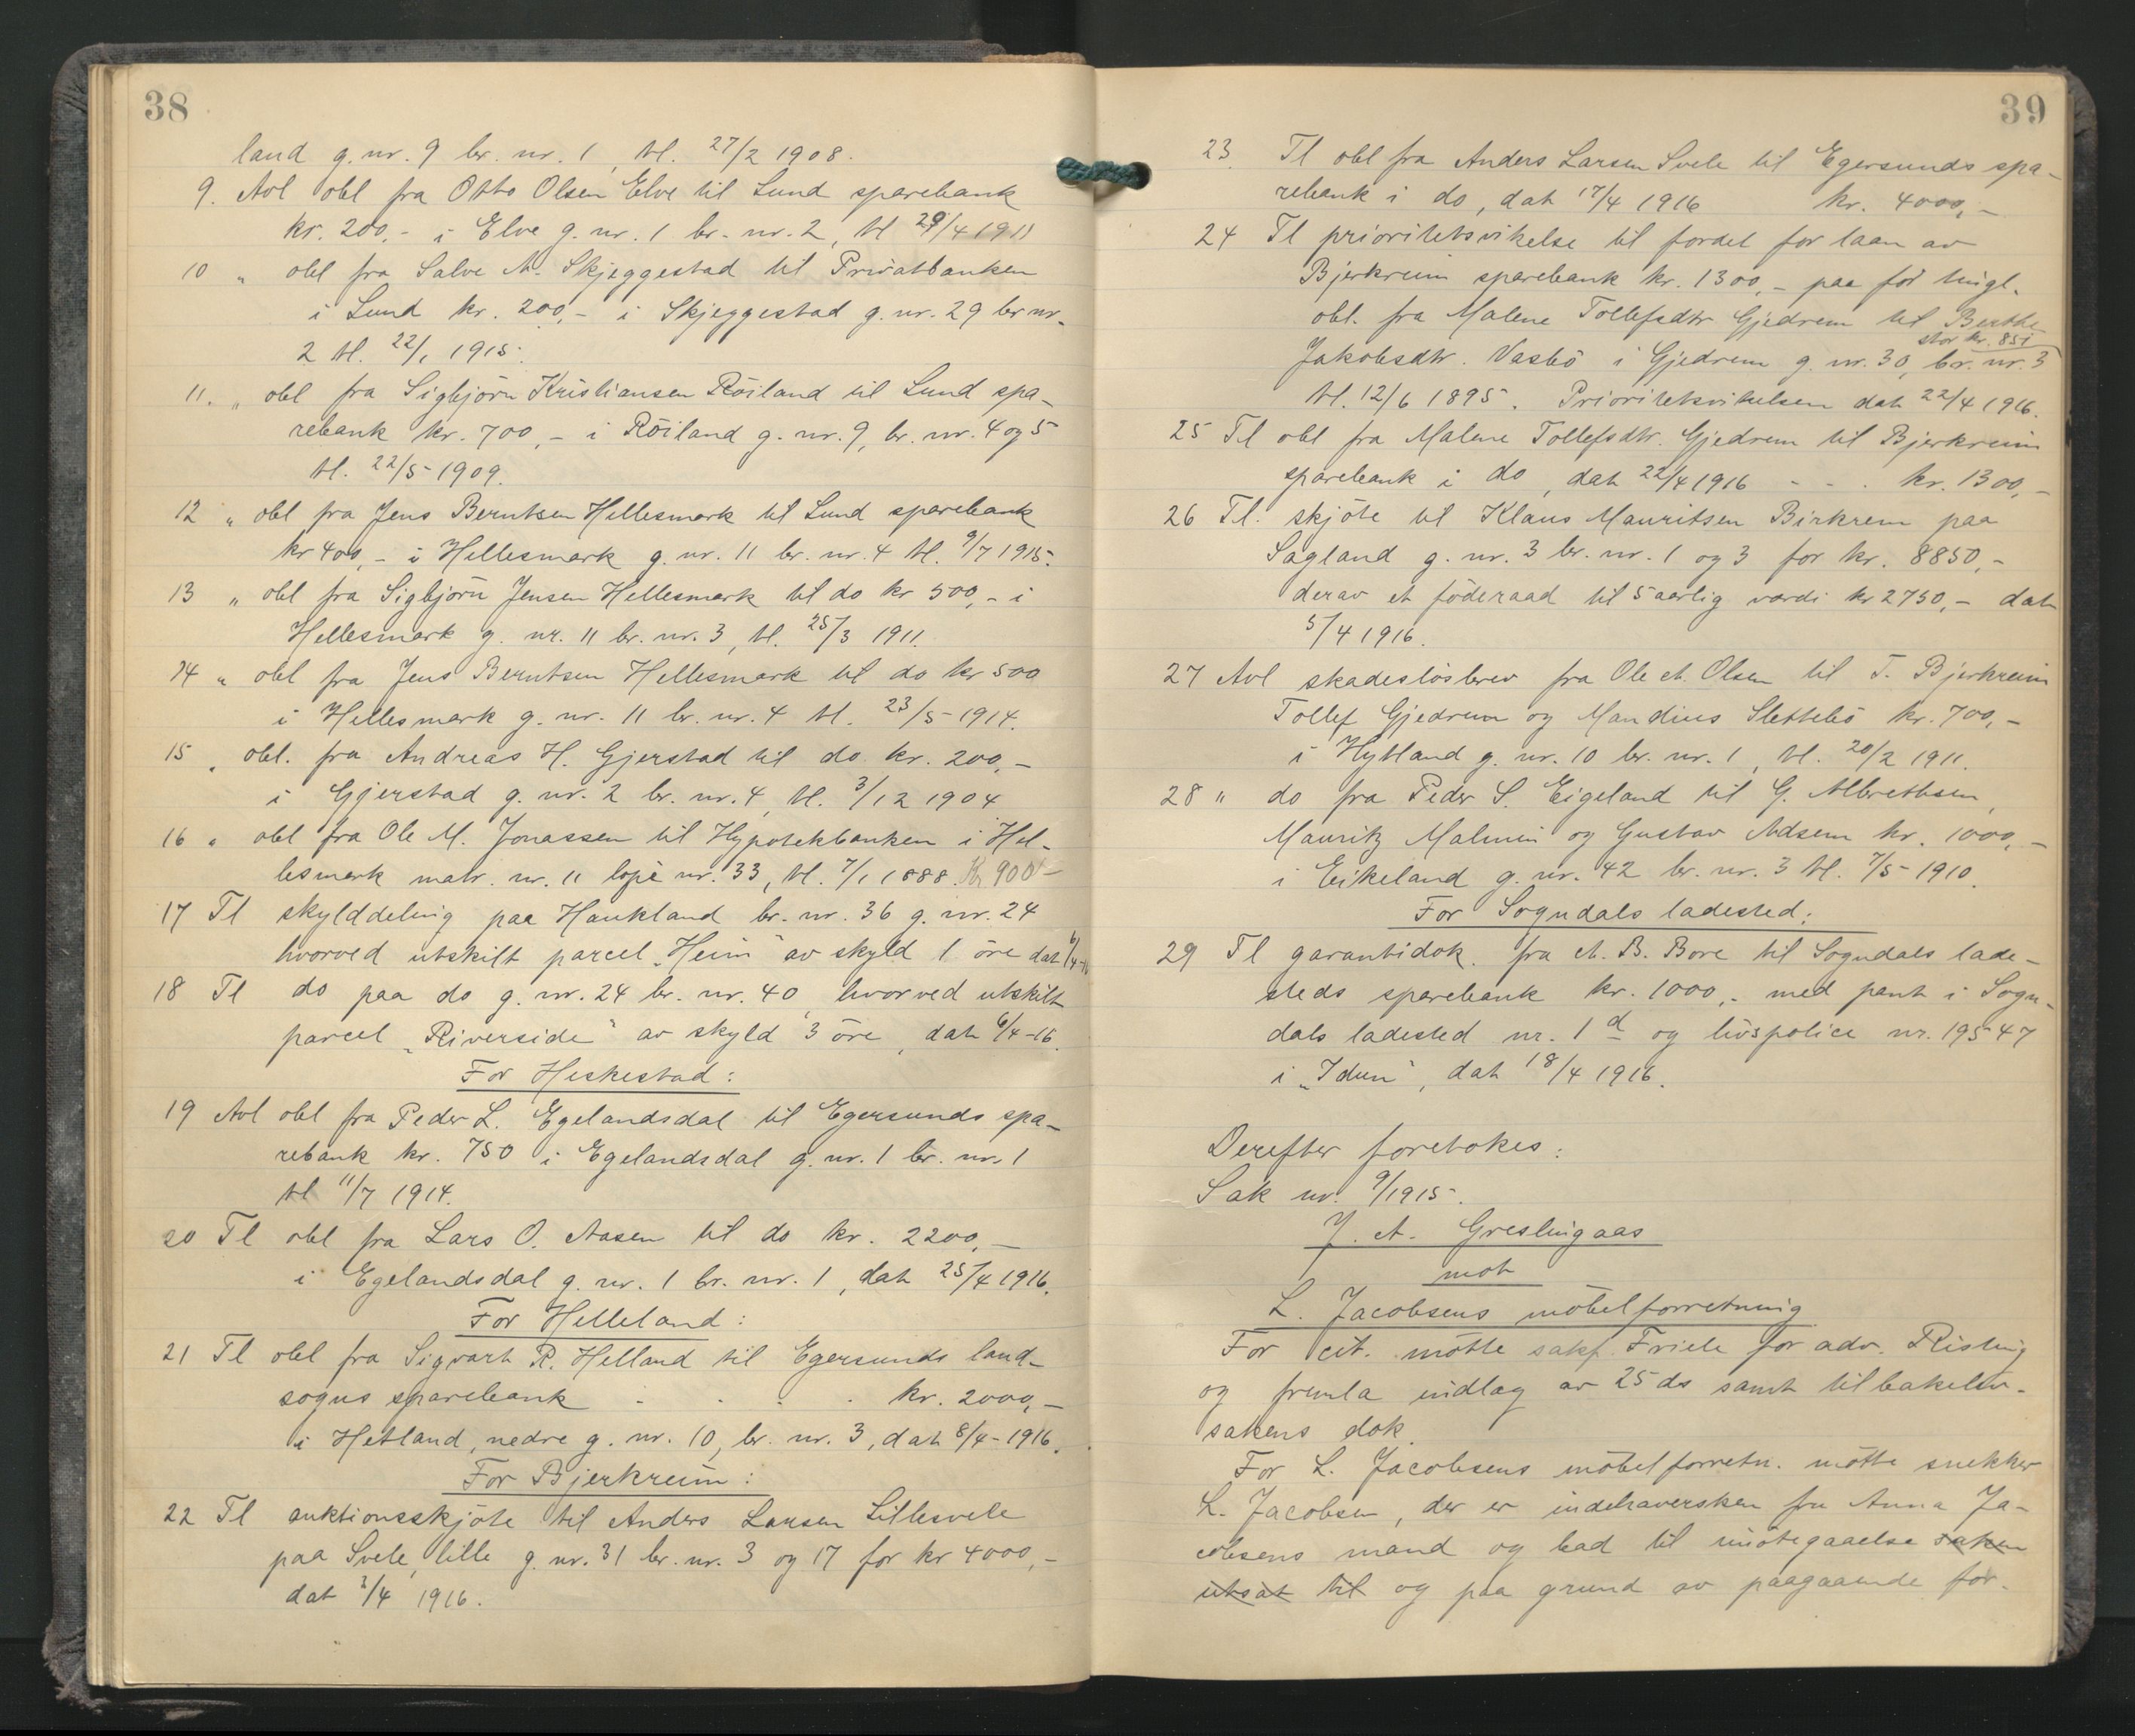 38
land g. nr. 9 br. nr. 1, tl. 27/2 1908.
9. Avl obl fra Otto Olsen Elve til Lund sparebank
kr. 200,- i Elve g. nr. 1 br. nr. 2, tl 29/4 1911
10 „ obl fra Salve A. Skjeggestad til Privatbanken
i Lund kr. 200,- i Skjeggestad g. nr. 29 br nr.
2 tl. 22/1 1915.
11. „ obl fra Sigbjörn Kristiansen Röiland til Lund spa-
rebank kr. 700,- i Röiland g. nr. 9, br. nr. 4 og 5
tl. 22/5-1909.
12 „ obl fra Jens Berntsen Hellesmark til Lund sparebank
kr 400,- i Hellesmark g. nr. 11 br. nr. 4 tl. 9/7 1915.
13 „ obl fra Sigbjörn Jensen Hellesmark til do kr 500,- i
Hellesmark g. nr. 11 br. nr. 3, tl. 25/3 1911.
14 „ obl fra Jens Berntsen Hellesmark til do kr 500
i Hellesmark g. nr. 11 br. nr. 4 tl. 23/5-1914.
15 „ obl. fra Andreas H. Gjerstad til do kr. 200,-
i Gjerstad g. nr. 2 br. nr. 4, tl. 3/12 1904
16 „ obl fra Ole M. Jonassen til Hypotekbanken i Hel-
lesmark matr. nr. 11 lope nr. 33, tl. 7/1 1888. Kr 900-
17 Tl skylddeling paa Haukland br. nr. 36 g. nr. 24
hvorved utskilt parcel „Heim" av skyld 1 öre dat 6/4-16
18 Tl do paa do g. nr. 24 br. nr. 40, hvorved utskilt
parcel „Riverside" av skyld 3 öre, dat 6/4-16.
For Heskestad:
19 Avl obl fra Peder L. Egelandsdal til Egersunds spa-
rebank kr. 750 i Egelandsdal g. nr. 1 br. nr. 1
tl 11/7 1914.
20 Tl obl fra Lars O. Aasen til do kr. 2200,-
i Egelandsdal g. nr. 1 br. nr. 1, dat 25/4 1916.
For Helleland:
21 Tl obl fra Sigvart R. Helland til Egersunds land-
sogns sparebank . . . . kr. 2000,-
i Hetland, nedre g. nr. 10, br. nr. 3, dat 8/4-1916.
For Bjerkreim:
22 Tl auktionsskjöte til Anders Larsen Lillesvele
paa Svele, lille g. nr. 31 br. nr. 3 og 17 for kr 4000,-
dat 3/4 1916.
39
23 Tl obl fra Anders Larsen Svele til Egersunds spa-
rebank i do, dat 17/4 1916 kr. 4000,-
24 Tl prioritetsvikelse til fordel for laan av
Bjerkreim sparebank kr. 1300,- paa för tingl.
obl. fra Malene Tollefsdtr. Gjedrem til Berthe
stor kr. 851
Jakobsdtr. Vasbö i Gjedrem g. nr. 30, br. nr. 3
tl. 12/6 1895. Prioritetsvikelsen dat 22/4 1916.
25 Tl obl fra Malene Tollefsdtr. Gjedrem til Bjerkreim
sparebank i do, dat 22/4 1916 - - . kr. 1300,-
26 Tl. skjöte til Klaus Mauritsen Birkrem paa
Sagland g. nr. 3 br. nr. 1 og 3 for kr. 8850,-
derav et föderaad til 5 aarlig værdi kr 2750,- dat
5/4 1916.
27 Avl skadeslösbrev fra Ole A. Olsen til T. Bjerkreim
Tollef Gjedrem og Mandius Slettebö kr. 700,-
i Hytland g. nr. 10 br. nr. 1, tl. 20/2 1911.
28 „ do fra Peder S. Eigeland til G. Albrethsen,
Mauritz Malmin og Gustav Adsem kr. 1000,-
i Eikeland g. nr. 42 br. nr. 3 tl. 7/5-1910.
For Sogndals ladested:
29 Tl garantidok. fra A. B. Bore til Sogndals lade-
steds sparebank kr. 1000,- med pant i Sogn-
dals ladested nr. 1 d og livspolice nr. 19547
i „Idun", dat 18/4 1916.
Derefter foretokes:
Sak nr. 9/1915.
J. A. Greslingaas
mot
L. Jacobsens möbelforretning
For cit. mötte sakf. Friele for adv. Risting
og fremla indlæg av 25 ds samt tilbakelev.
sakens dok.
For L. Jacobsens möbelforretn. mötte snekker
L. Jacobsen, der er indehaversken fru Anna Ja-
cobsens mand og bad til imötegaaelse saken
utsat til og paa grund av paagaaende for-